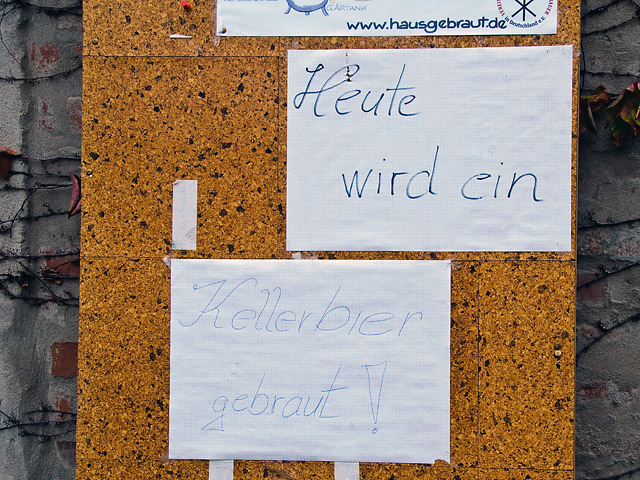 GÄRTANK
www.hausgebraut.de
in Deutschland e.V.
Heute
wird ein
Kellerbier
gebraut!